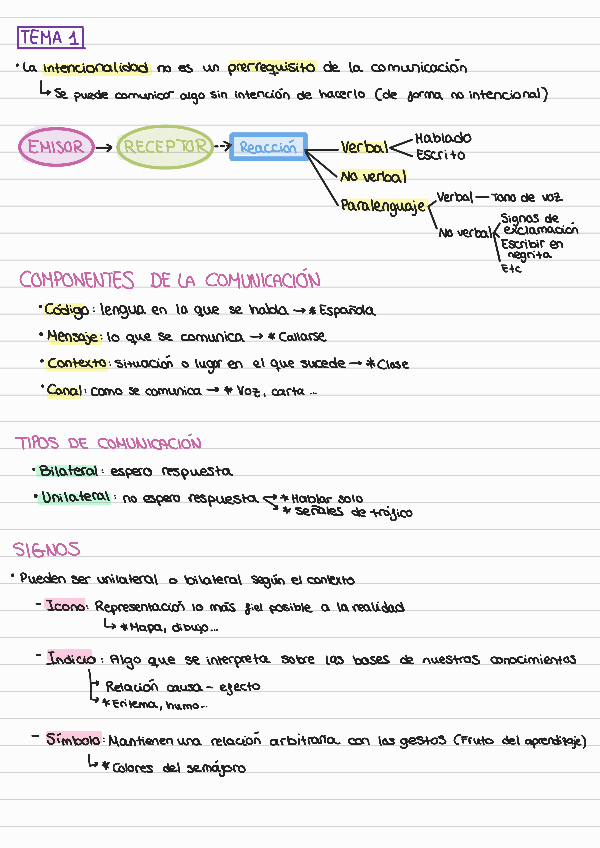 TEMA 1
· La intencionalidad no es un prerrequisito de la comunicación
↳ Se puede comunicar algo sin intención de hacerlo (de forma no intencional)
EMISOR → RECEPTOR --→ Reacción
Verbal
Hablado
Escrito
No verbal
Paralenguaje
Verbal — Tono de voz
No verbal
Signos de
exclamación
Escribir en
negrita
Etc
COMPONENTES DE LA COMUNICACIÓN
· Código: lengua en la que se habla → * Española
· Mensaje: lo que se comunica → * Callarse
· Contexto: situación o lugar en el que sucede → * Clase
· Canal: como se comunica → * Voz, carta...
TIPOS DE COMUNICACIÓN
· Bilateral: espero respuesta
· Unilateral: no espero respuesta → * Hablar solo
→ * señales de tráfico
SIGNOS
· Pueden ser unilateral o bilateral según el contexto
- Icono: Representación lo más fiel posible a la realidad
↳ * Mapa, dibujo...
- Indicio: Algo que se interpreta sobre las bases de nuestros conocimientos
→ Relación causa - efecto
→ * Eritema, humo...
- Símbolo: Mantienen una relación arbitraria con los gestos (Fruto del aprendizaje)
↳ * Colores del semáforo